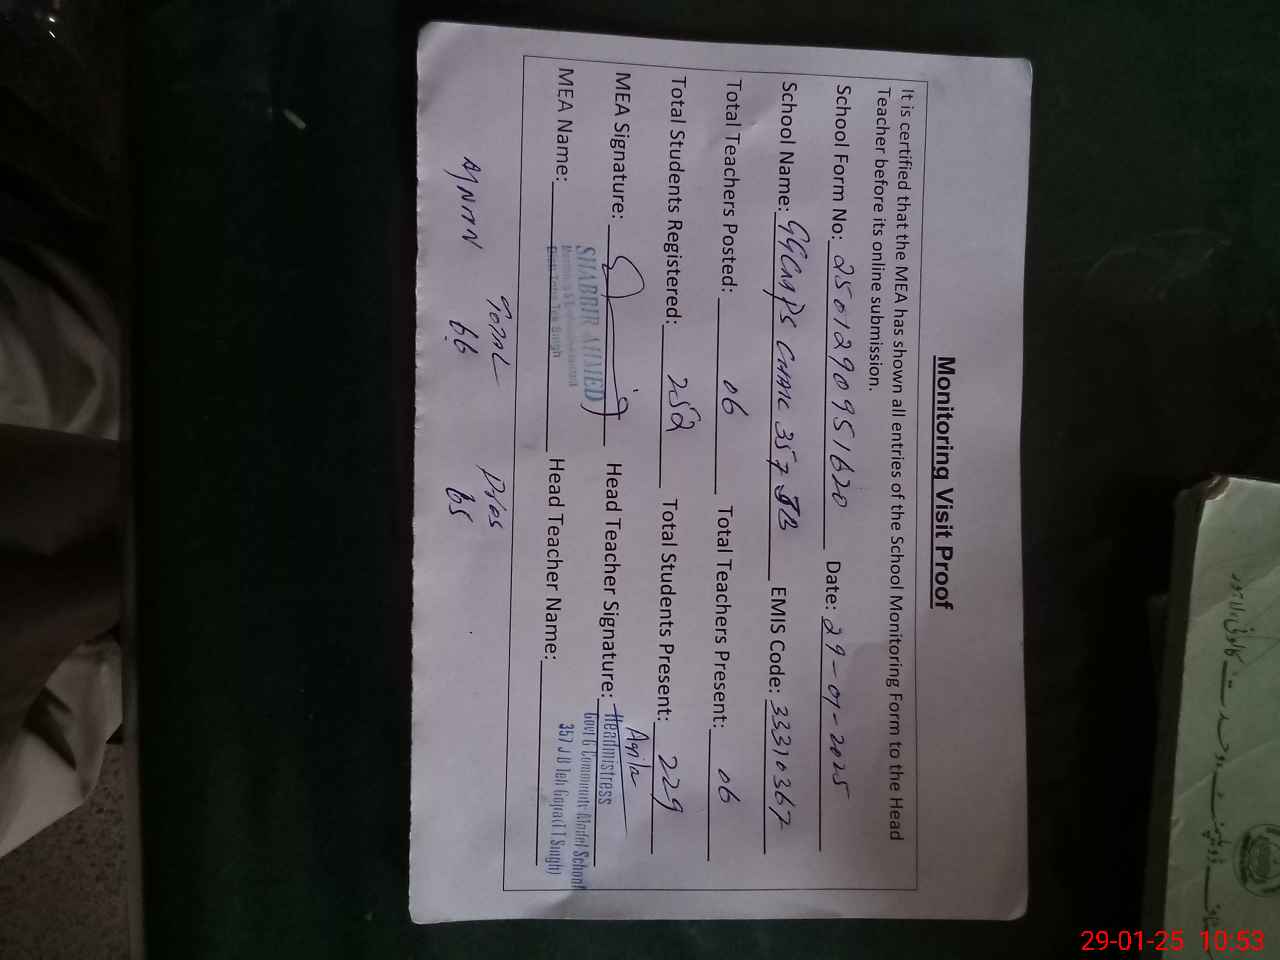 Monitoring Visit Proof
It is certified that the MEA has shown all entries of the School Monitoring Form to the Head
Teacher before its online submission.
School Form No: 2501290951620 Date: 29-01-2025
School Name: GGCMPS CHAK 357 JB EMIS Code: 33310367
Total Teachers Posted: 06 Total Teachers Present: 06
Total Students Registered: 252 Total Students Present: 229
MEA Signature: Head Teacher Signature: Aqila
SHABBIR AHMED
Headmistress
Govt G Community Model School
357 J B Teh Gojra (T T Singh)
MEA Name: Head Teacher Name:
Total
66
65
29-01-25 10:53